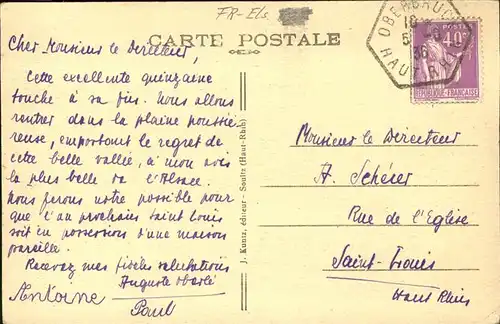 FR-Els.
CARTE POSTALE
Cher Monsieur le Directeur,
Cette excellente quinzaine
touche à sa fin. Nous allons
rentrer dans la plaine poussié-
reuse, emportant le regret de
cette belle vallée, à mon avis
la plus belle de l'Alsace.
Nous ferons notre possible pour
que l'an prochain Saint Louis
soit en possession d'une maison
pareille.
Recevez mes fidèles salutations
Auguste
Antoine
Paul
J. Kuntz, éditeur - Soultz (Haut-Rhin)
OBERBRUCK
36
HAUT-RHIN
POSTES
40c
REPUBLIQUE-FRANÇAISE
Monsieur le Directeur
A. Schérer
Rue de l'Eglise
Saint-Louis
Haut Rhin